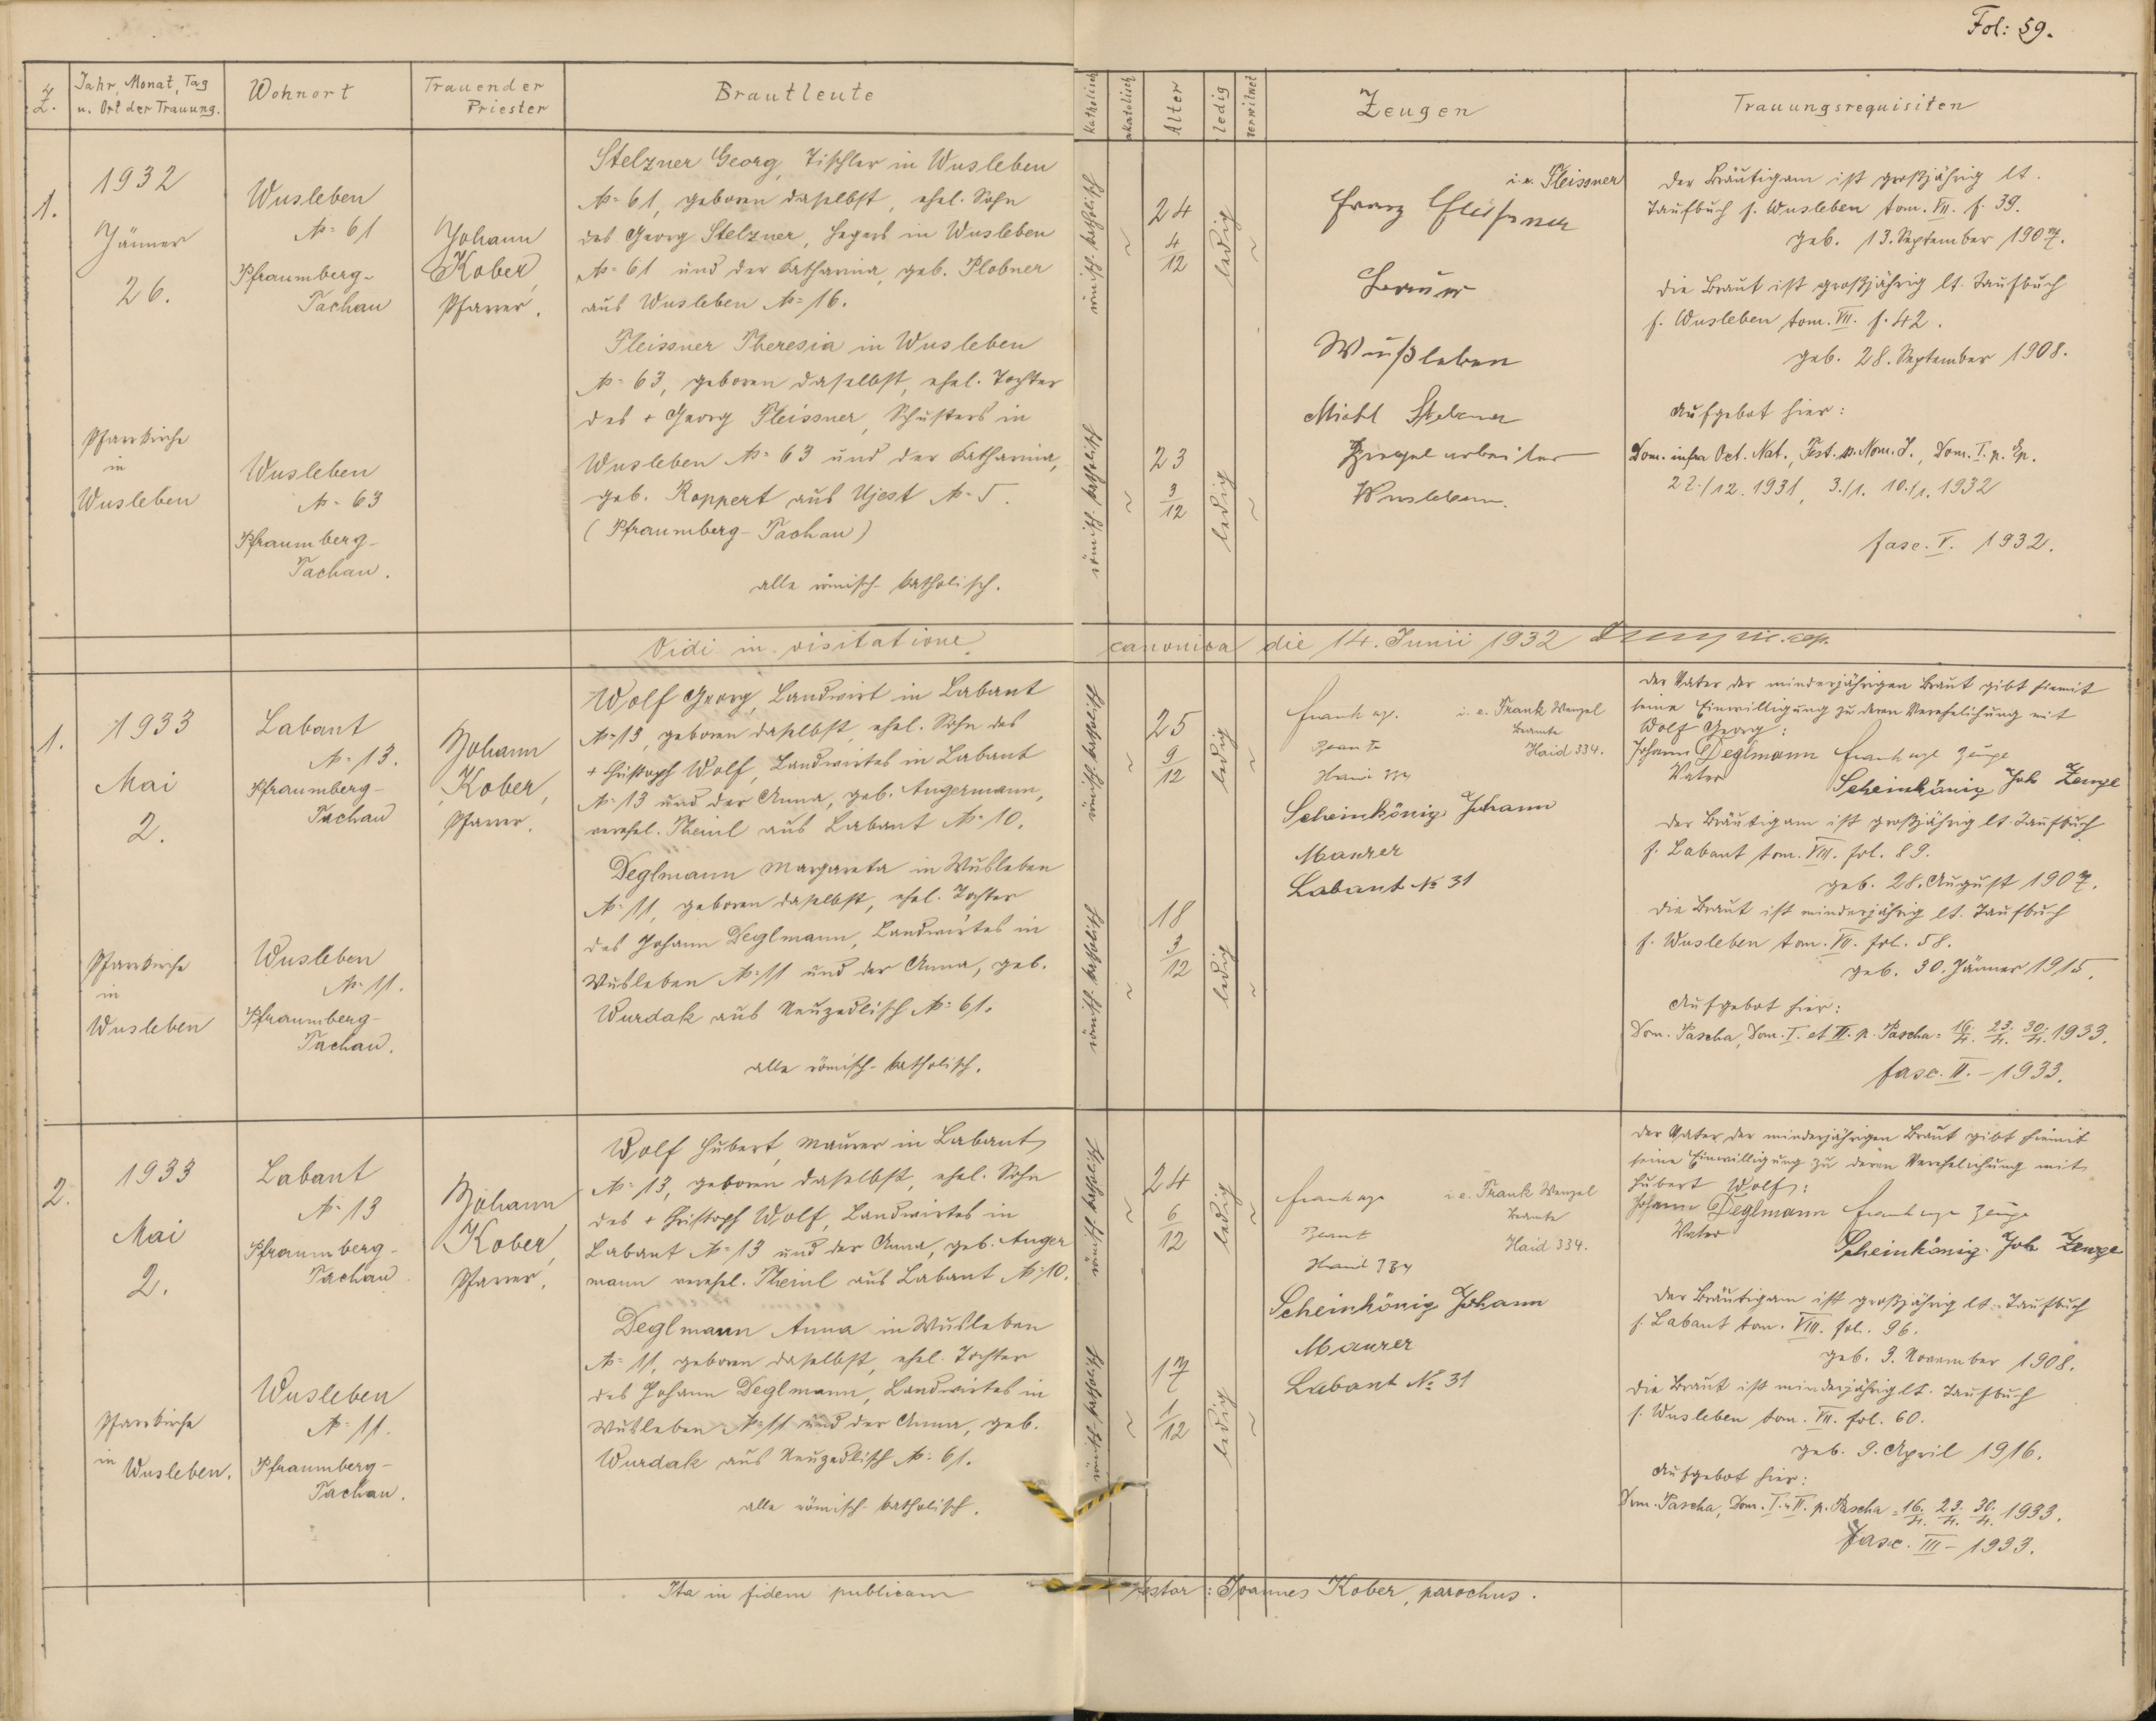 Fol: 59.
Z.
Jahr, Monat, Tag
u. Ort der Trauung.
Wohnort
Trauender
Priester
Brautleute
katholisch
akatolisch
Alter
ledig
verwitwet
Zeugen
Trauungsrequisiten
1.
1932
Jänner
26.
Pfarrkirche
in
Wusleben
Wusleben
№ 61
Pfraumberg-
Tachau
Wusleben
№ 63
Pfraumberg-
Tachau.
Johann
Kober,
Pfarrer.
Stelzner Georg, Tischler in Wusleben
№ 61, geboren daselbst, ehel. Sohn
des Georg Stelzner, Hegers in Wusleben
№ 61 und der Katharina, geb. Plobner
aus Wusleben № 16.
Pleissner Theresia in Wusleben
№ 63, geboren daselbst, ehel. Tochter
des + Georg Pleissner, Schusters in
Wusleben № 63 und der Katharina,
geb. Roppert aus Ujest № 5.
(Pfraumberg-Tachau)
alle römisch-katholisch.
römisch-katholisch
~
24
4/12
ledig
~
römisch-katholisch
~
23
3/12
ledig
~
i.e. Pleissner
Franz Pleißner
Wußleben
Michl Stelzner
Ziegelarbeiter
Wusleben.
Der Bräutigam ist großjährig lt.
Taufbuch f. Wusleben tom. VII. f. 39.
geb. 13. September 1907.
Die Braut ist großjährig lt. Taufbuch
f. Wusleben tom. VII. f. 42.
geb. 28. September 1908.
Aufgebot hier:
Dom. infra Oct. Nat., Fest. ss. Nom. J., Dom. I. p. Ep.
27./12. 1931, 3./1. 10./1. 1932
fasc. V. 1932.
Vidi in visitatione canonica die 14. Junii 1932
1.
1933
Mai
2.
Pfarrkirche
in
Wusleben
Labant
№ 13.
Pfraumberg-
Tachau
Wusleben
№ 11.
Pfraumberg-
Tachau.
Johann
Kober,
Pfarrer.
Wolf Georg, Landwirt in Labant
№ 13, geboren daselbst, ehel. Sohn des
+ Christoph Wolf, Landwirtes in Labant
№ 13 und der Anna, geb. Angermann,
verehel. Theinl aus Labant № 10.
Deglmann Margareta in Wusleben
№ 11, geboren daselbst, ehel. Tochter
des Johann Deglmann, Landwirtes in
Wusleben № 11 und der Anna, geb.
Wurdak aus Neuzedlisch № 61.
alle römisch-katholisch.
römisch-katholisch
~
25
9/12
ledig
~
römisch-katholisch
~
18
3/12
ledig
~
Frank
i.e. Frank Wenzel
Beamte
Haid 334.
Haid 334
Scheinkönig Johann
Maurer
Labant № 31
Der Vater der minderjährigen Braut gibt hiemit
seine Einwilligung zu deren Verehelichung mit
Wolf Georg:
Johann Deglmann Frank Zeuge
Vater
Scheinkönig Joh Zeuge
Der Bräutigam ist großjährig lt. Taufbuch
f. Labant tom. VIII. fol. 89.
geb. 28. August 1907.
Die Braut ist minderjährig lt. Taufbuch
f. Wusleben tom. VII. fol. 58.
geb. 30. Jänner 1915.
Aufgebot hier:
Dom. Pascha, Dom. I. et II. p. Pascha = 16./4. 23./4. 30./4. 1933.
fasc. II. - 1933.
2.
1933
Mai
2.
Pfarrkirche
in
Wusleben.
Labant
№ 13
Pfraumberg-
Tachau
Wusleben
№ 11.
Pfraumberg-
Tachau.
Johann
Kober,
Pfarrer.
Wolf Hubert, Maurer in Labant
№ 13, geboren daselbst, ehel. Sohn
des + Christoph Wolf, Landwirtes in
Labant № 13 und der Anna, geb. Anger
mann verehel. Theinl aus Labant № 10.
Deglmann Anna in Wusleben
№ 11, geboren daselbst, ehel. Tochter
des Johann Deglmann, Landwirtes in
Wusleben № 11 und der Anna, geb.
Wurdak aus Neuzedlisch № 61.
alle römisch-katholisch.
römisch-katholisch
~
24
6/12
ledig
~
römisch-katholisch
~
17
1/12
ledig
~
Frank
i.e. Frank Wenzel
Beamte
Haid 334.
Haid 334
Scheinkönig Johann
Maurer
Labant № 31
Der Vater der minderjährigen Braut gibt hiemit
seine Einwilligung zu deren Verehelichung mit
Hubert Wolf:
Johann Deglmann Frank Zeuge
Vater
Scheinkönig Joh Zeuge
Der Bräutigam ist großjährig lt. Taufbuch
f. Labant tom. VIII. fol. 96.
geb. 3. November 1908.
Die Braut ist minderjährig lt. Taufbuch
f. Wusleben tom. VII. fol. 60.
geb. 9. April 1916.
Aufgebot hier:
Dom. Pascha, Dom. I. u. II. p. Pascha = 16./4. 23./4. 30./4. 1933.
fasc. III - 1933.
Ita in fidem publicam testor: Joannes Kober, parochus.